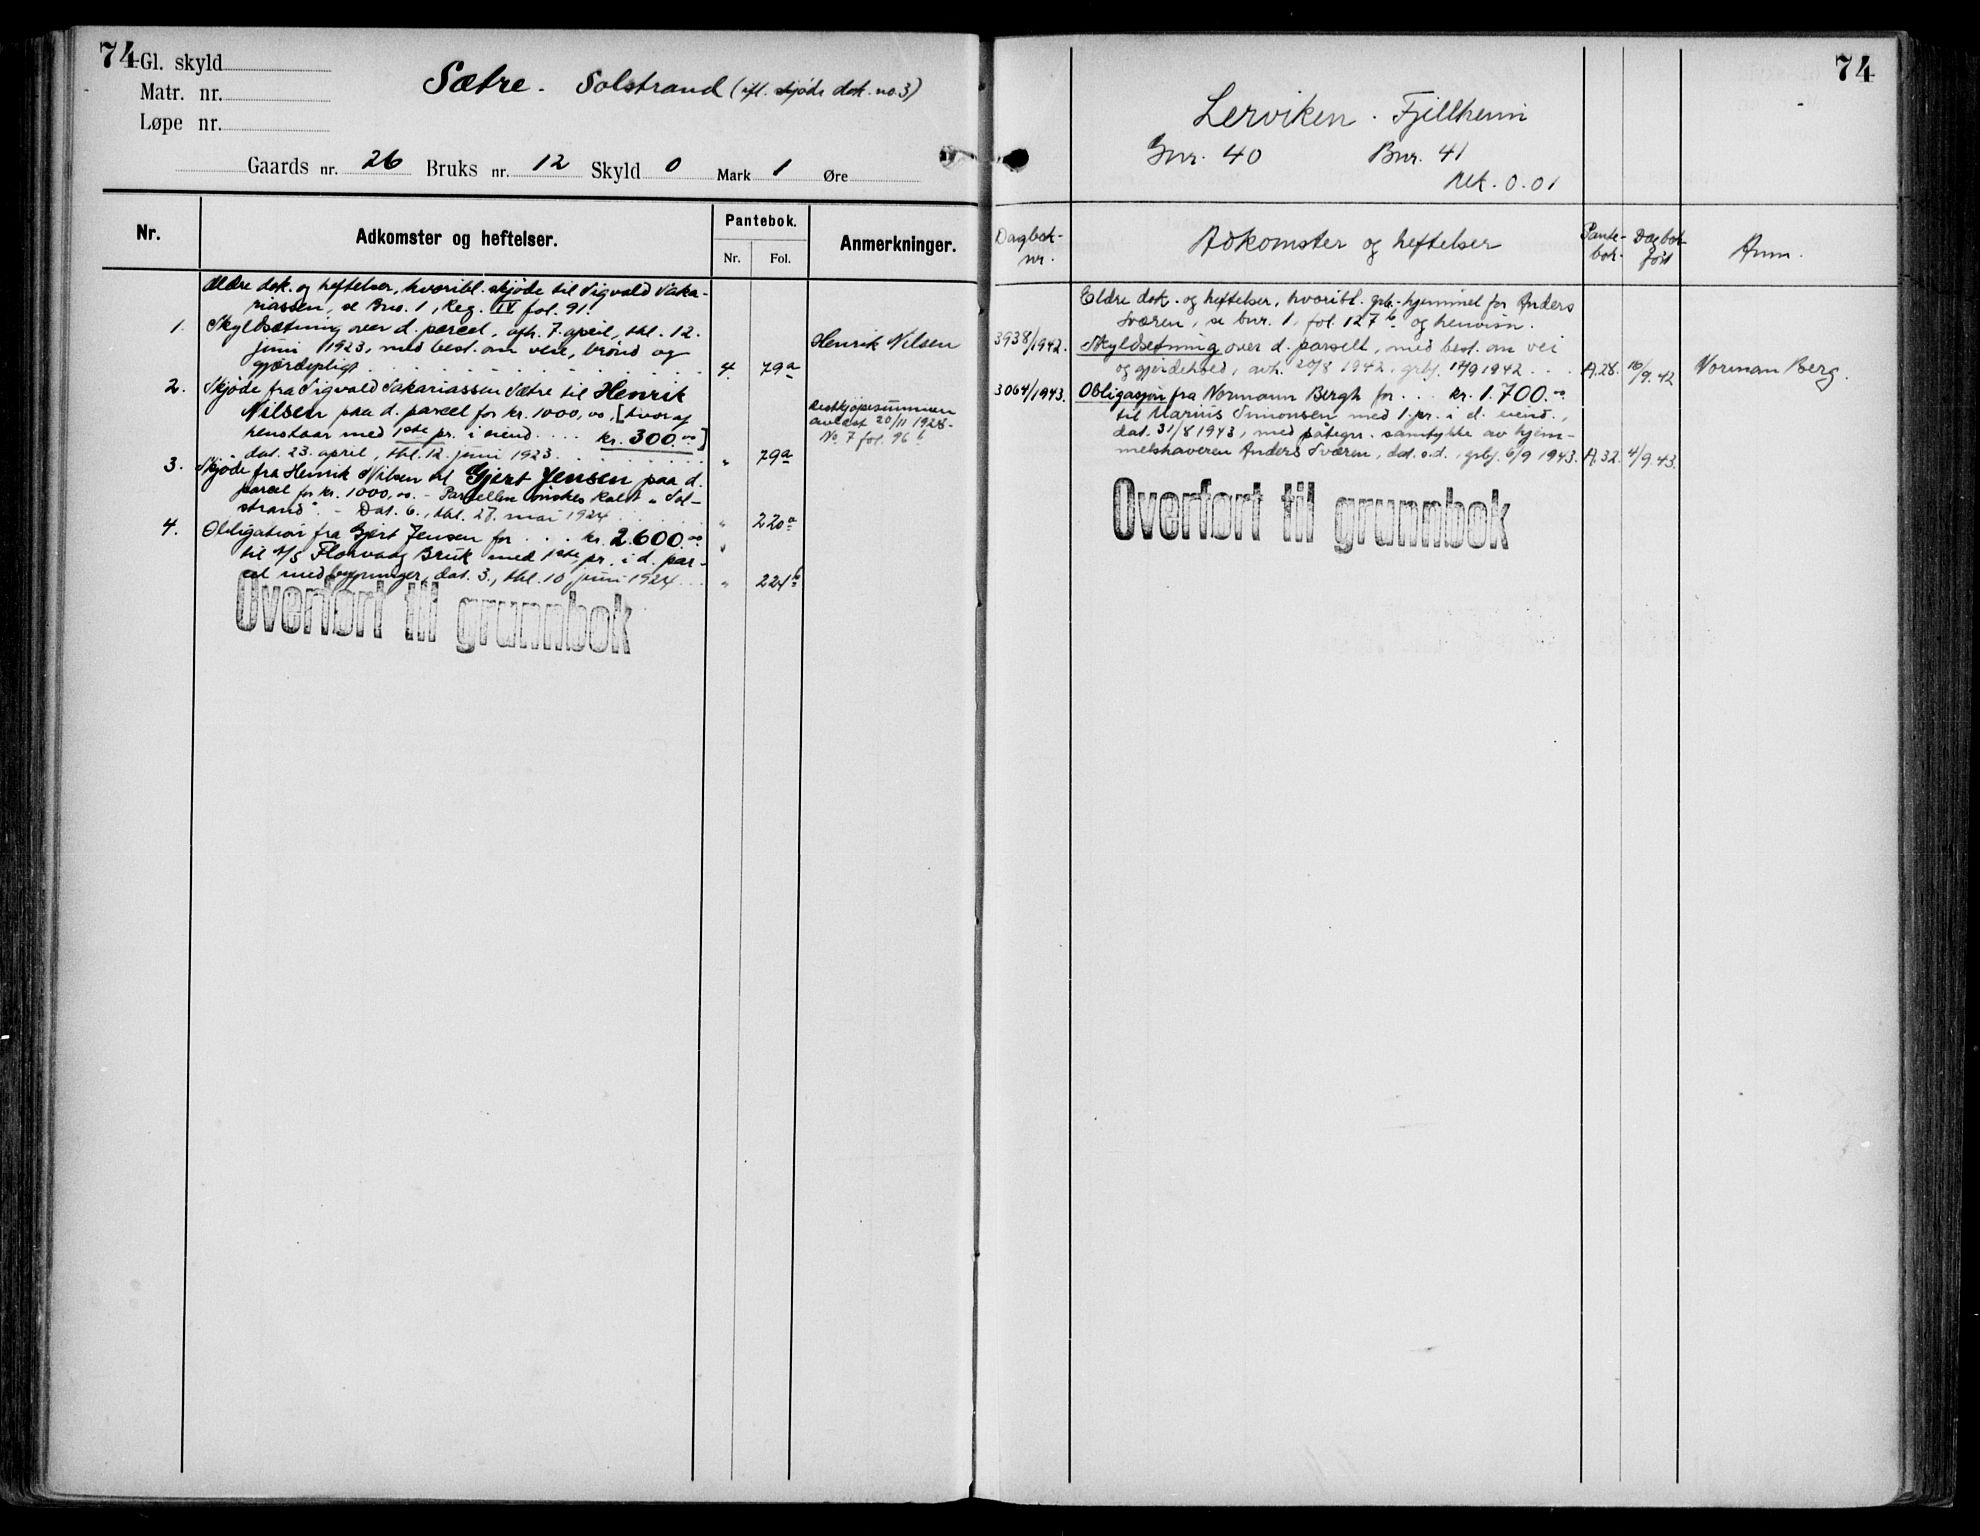 74
Gl. skyld
Matr. nr.
Løpe nr.
Sætre. Solstrand (ifl. skjøde dok. no 3)
Gaards nr. 26 Bruks nr. 12 Skyld 0 Mark 1 Øre
Nr.
Adkomster og heftelser.
Pantebok.
Nr. Fol.
Anmerkninger.
Ældre dok. og heftelser, hvoribl. skjøde til Sigvald Saka-
riassen, se Bno. 1, Reg. IV fol. 91.
1. Skyldsætning over d. parcel, afh. 7. april, tbl. 12.
juni 1923, med best. om veie, brønd og
gjærdepligt . . . 4. 79a
Henrik Nilsen
2. Skjøde fra Sigvald Sakariassen Sætre til Henrik
Nilsen paa d. parcel for kr. 1000,00, [hvoraf
henstaar med 1ste pr. i eiend. . . . kr. 300.00]
dat. 23. april, tbl. 12. juni 1923 . . . " 79a
Restkjøpesummen
avlæst 20/11 1928 -
No. 7 fol. 96 b
3. Skjøde fra Henrik Nilsen til Gjert Jensen paa d.
parcel for kr. 1000,00. - Parcellen ønskes kaldt "Sol-
strand". - Dat. 6., tbl. 27. mai 1924 . . . " 220a
4. Obligation fra Gjert Jensen for . . . kr. 2.600.00
til A/S Florvaag Bruk med 1ste pr. i d. par-
cel med bygninger, dat. 3., tbl. 10 juni 1924 . . " 224b
Overført til grunnbok
74
Lerviken. Fjellheim
Gnr. 40 Bnr. 41
Mk. 0.01
Dagbok-
nr.
Adkomster og heftelser
Pante-
bok.
Dagbok
ført
Anm.
Eldre dok. og heftelser, hvoribl. grb. hjemmel for Anders
Sværen, se bnr. 1, fol. 127 b og henvisn.
3938/1942. Skyldsetning over d. parsell, med best. om vei
og gjerdehold, avh. 20/8 1942, grbf. 17/9 1942 . . . A.28. 16/9.42 Norman Berg.
3064/1943. Obligasjon fra Normann Bergh for . . . kr. 1.700.00
til Marius Simonsen med 1. pr. i d. eiend.,
dat. 31/8 1943, med påtegn. samtykke av hjem-
melshaveren Anders Sværen, dat. s.d., grbf. 6/9 1943. A.32. 4/9.43.
Overført til grunnbok